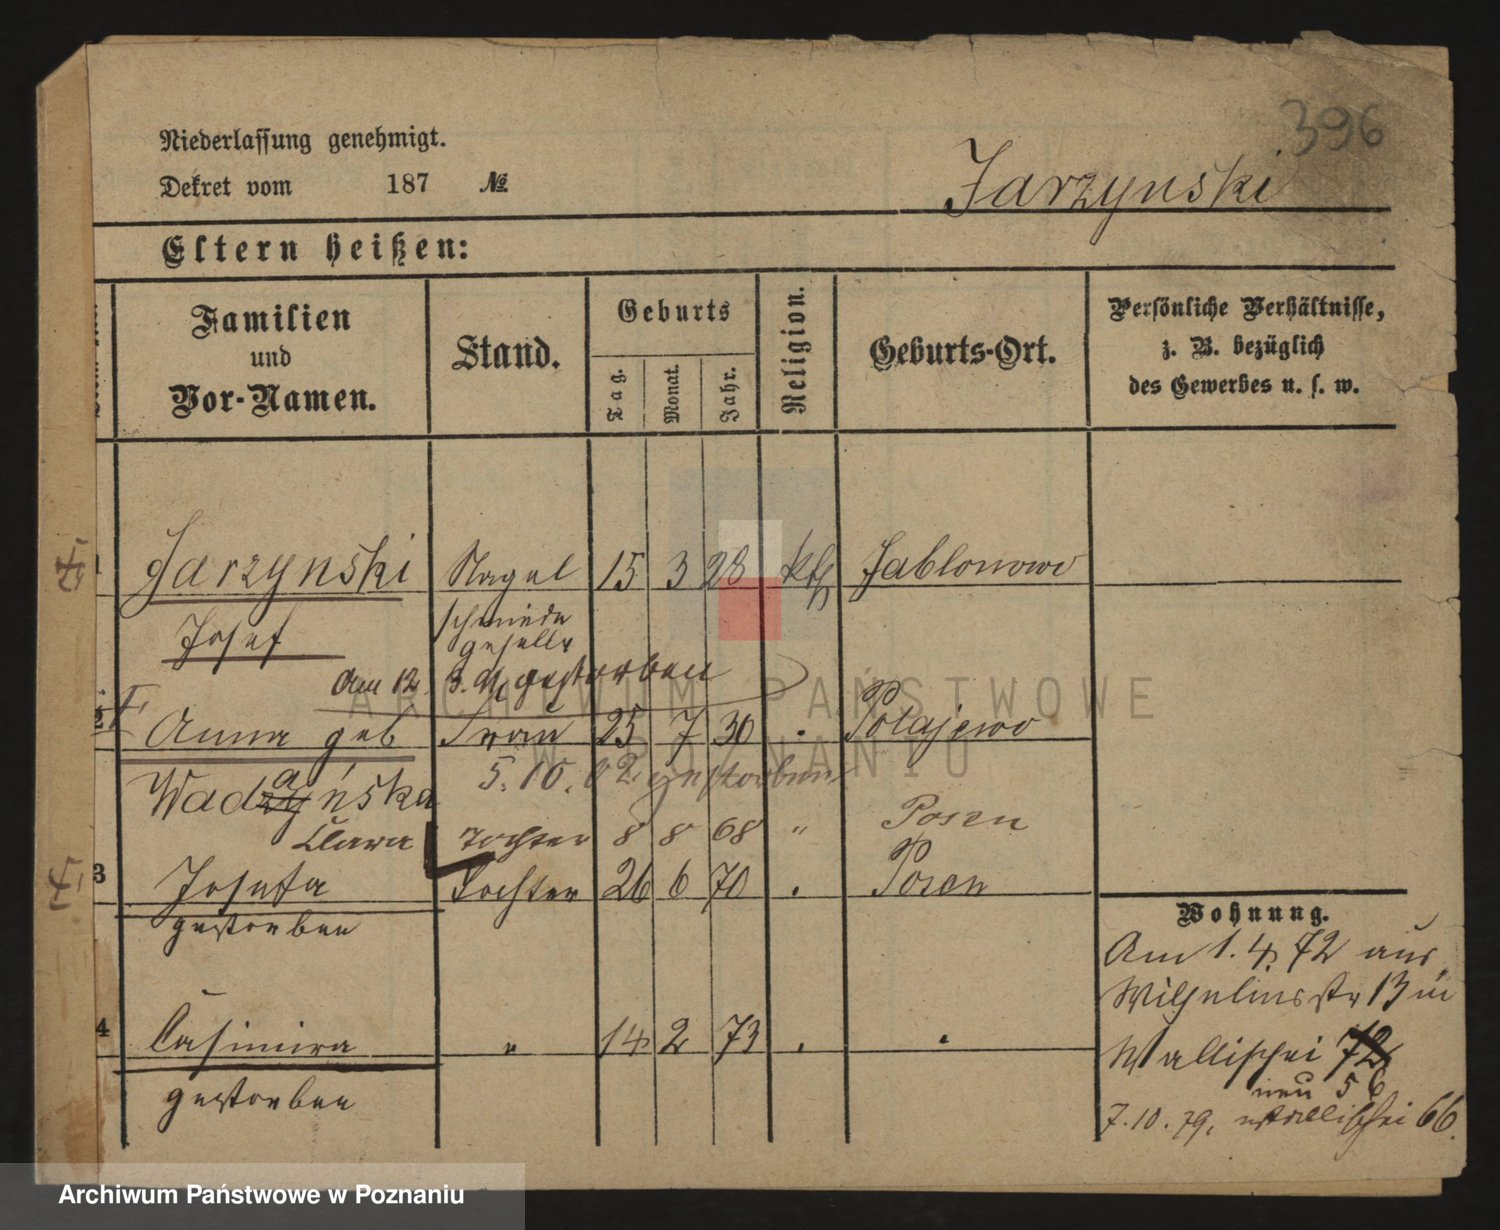 396
Niederlassung genehmigt.
Dekret vom 187 №
Jarzynski
Eltern heißen:
Familien und Vor-Namen.
Stand.
Geburts
Tag.
Monat.
Jahr.
Religion.
Geburts-Ort.
Persönliche Verhältnisse,
z. B. bezüglich
des Gewerbes u. s. w.
1 Jarzynski Nagel 15 3 28 kth Jablonowo
Josef schmiede
geselle
Am 12. 3. gestorben
2 Anna geb Frau 25 7 30 " Polajewo
5. 10. 02 gestorben
Wadzyńska
a
Clara Tochter 8 8 68 " Posen
3 Josefa Tochter 26 6 70 " Posen
gestorben
4 Casimira " 14 2 73 " "
gestorben
Wohnung.
Am 1. 4. 72 aus
Wilhelmsstr 13 in
Wallischei 72
neu 56
7.10.79. Wallischei 66.
ARCHIWUM PAŃSTWOWE
W POZNANIU
Archiwum Państwowe w Poznaniu